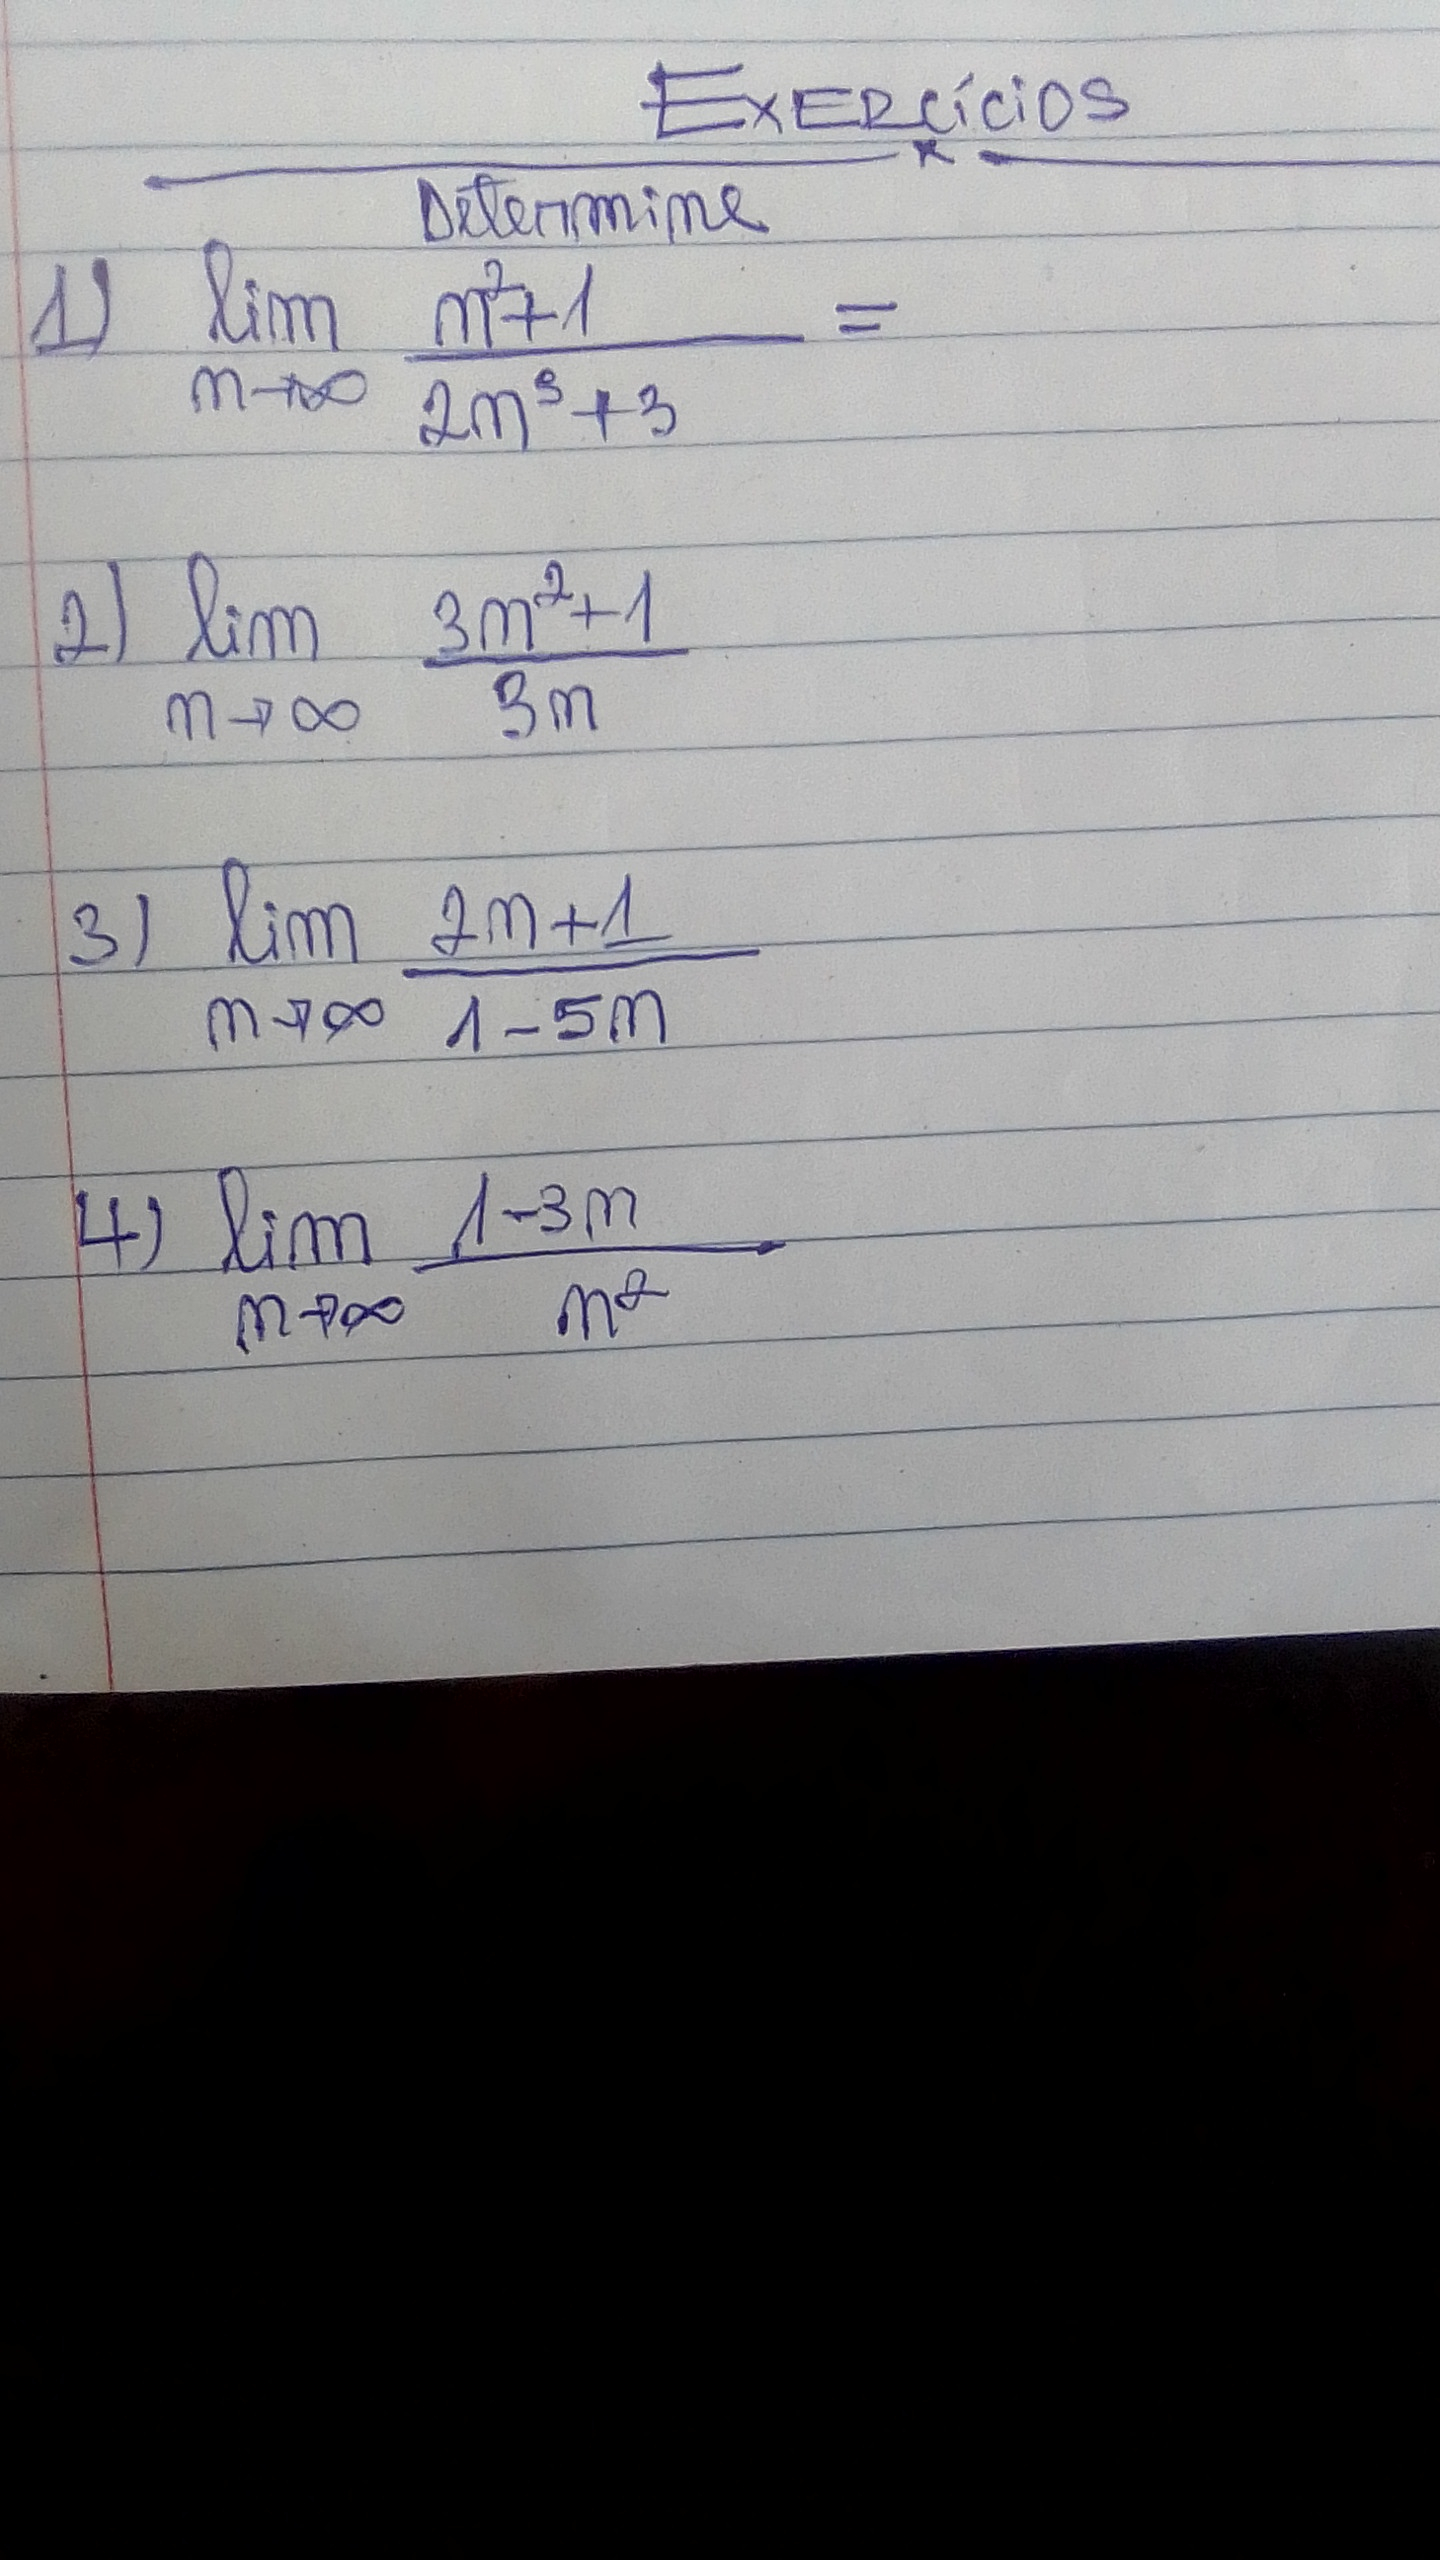 EXERCÍCIOS
Determine
1) lim n²+1 =
n→∞ 2n³+3
2) lim 3n²+1
n→∞ 3n
3) lim 2n+1
n→∞ 1-5n
4) lim 1-3n
n→∞ n²